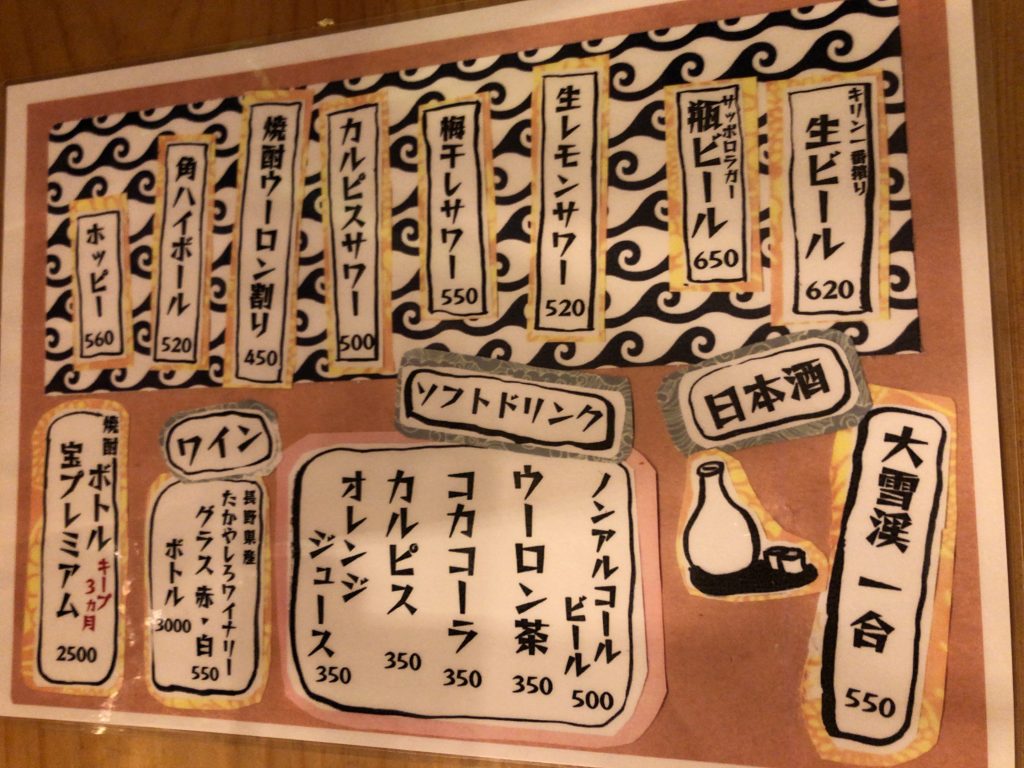 キリン一番搾り
生ビール
620
サッポロラガー
瓶ビール
650
生レモンサワー
520
梅干しサワー
550
カルピスサワー
500
焼酎ウーロン割り
450
角ハイボール
520
ホッピー
560
日本酒
大雪渓 一合
550
ソフトドリンク
ノンアルコール
ビール
500
ウーロン茶
350
コカコーラ
350
カルピス
350
オレンジ
ジュース
350
ワイン
長野県産
たかやしろワイナリー
グラス 赤・白
550
ボトル
3000
焼酎 ボトル キープ
3ヵ月
宝プレミアム
2500